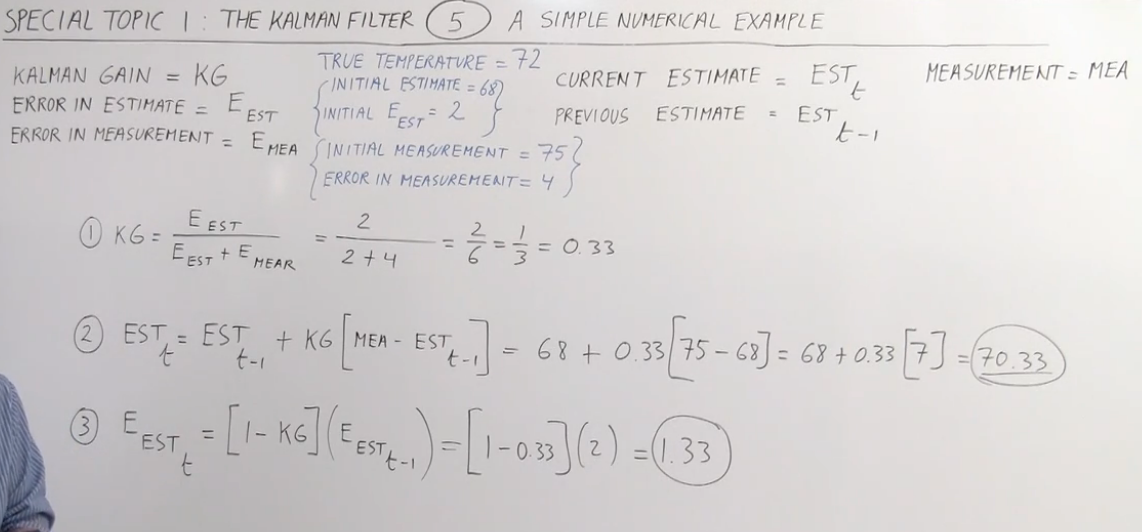 SPECIAL TOPIC 1 : THE KALMAN FILTER 5 A SIMPLE NUMERICAL EXAMPLE
KALMAN GAIN = KG
ERROR IN ESTIMATE = E_EST
ERROR IN MEASUREMENT = E_MEA
TRUE TEMPERATURE = 72
{INITIAL ESTIMATE = 68}
{INITIAL E_EST = 2}
{INITIAL MEASUREMENT = 75}
{ERROR IN MEASUREMENT = 4}
CURRENT ESTIMATE = EST_t
PREVIOUS ESTIMATE = EST_t-1
MEASUREMENT = MEA
① KG = E_EST / (E_EST + E_MEAR) = 2 / (2 + 4) = 2/6 = 1/3 = 0.33
② EST_t = EST_t-1 + KG [MEA - EST_t-1] = 68 + 0.33 [75 - 68] = 68 + 0.33 [7] = 70.33
③ E_EST_t = [1 - KG] (E_EST_t-1) = [1 - 0.33] (2) = 1.33